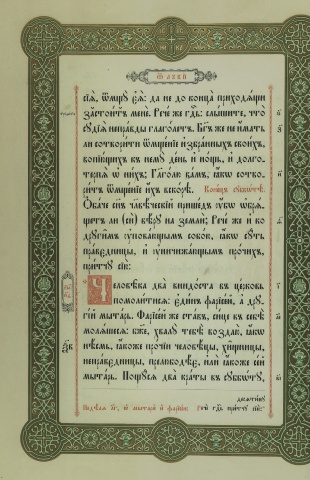 Ѿ ЛꙊКИ
сїѧ̀, ѿмщꙋ̀ є҆ѧ̀: да не до конца̀ приходѧщи
застоитъ менѐ. Речѐ же гдⷭ҇ь: слышите, что
сꙋдїѧ̀ неправды глаголетъ. Бг҃ъ же не имать ли
сотворити ѿмщенїе избранныхъ своихъ,
вопїющихъ къ немꙋ̀ день и нощь, и долго-
терпѧ̀ ѡ нихъ; Глаголю вамъ, ꙗкѡ сотво-
ритъ ѿмщенїе ихъ вскорѣ. Конецъ сꙋббѡтѣ.
Обаче сн҃ъ человѣческїй пришедъ ᲂубѡ ѡбрѧ-
щетъ ли (си) вѣрꙋ на земли; Речѐ же и ко
дрꙋгимъ ᲂуповающымъ собою, ꙗкѡ сꙋть
праведницы, и ᲂуничижающымъ прочихъ,
притчꙋ сїю:
Человѣка два внидоста въ церковь
помолитисѧ: єдинъ фарїсей, а дрꙋ-
гїй мытарь. Фарїсей же ставъ, сице въ себѣ
молѧшесѧ: бж҃е, хвалꙋ тебѣ воздаю, ꙗкѡ
нѣсмь, ꙗкоже прочїи человѣцы, хищницы,
неправедницы, прелюбодѣе, или ꙗкоже сей
мытарь. Пощꙋсѧ два краты въ сꙋббѡтꙋ,
десѧтинꙋ
Недѣлѧ о мытари и фарїсеи: гдⷭ҇ь притчꙋ сїю: